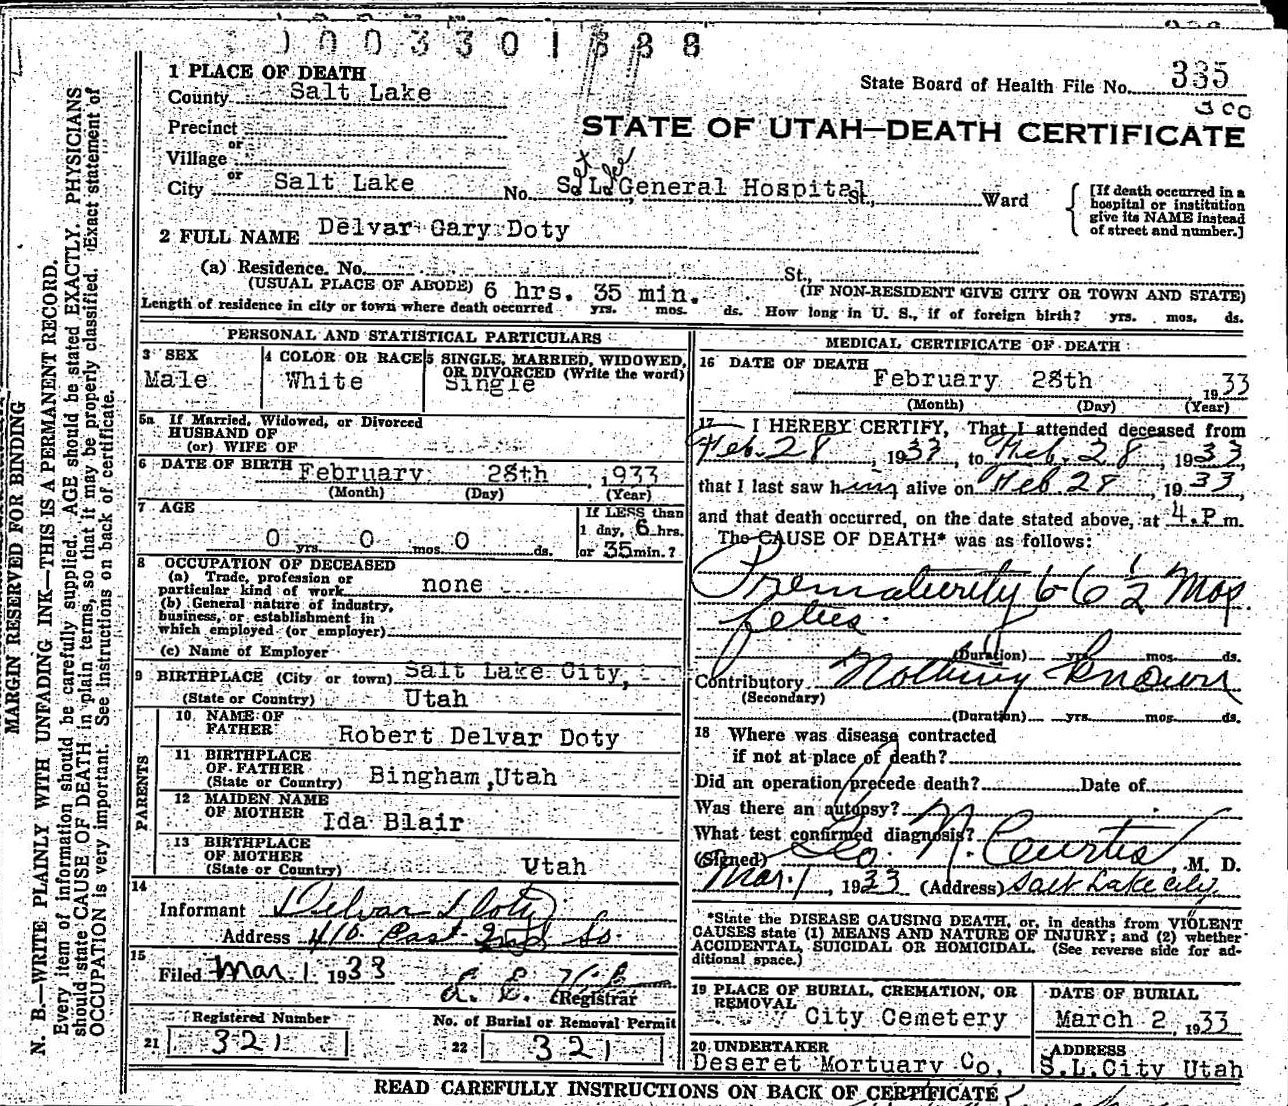 1003301688
1 PLACE OF DEATH
County Salt Lake
State Board of Health File No. 335
Precinct
or
Village
or
City Salt Lake No. S.L. General Hospital St., Ward
STATE OF UTAH—DEATH CERTIFICATE
[If death occurred in a
hospital or institution
give its NAME instead
of street and number.]
2 FULL NAME Delvar Gary Doty
(a) Residence. No. St.,
(USUAL PLACE OF ABODE) 6 hrs. 35 min. (IF NON-RESIDENT GIVE CITY OR TOWN AND STATE)
Length of residence in city or town where death occurred yrs. mos. ds. How long in U. S., if of foreign birth? yrs. mos. ds.
PERSONAL AND STATISTICAL PARTICULARS
3 SEX
Male
4 COLOR OR RACE
White
5 SINGLE, MARRIED, WIDOWED,
OR DIVORCED (Write the word)
Single
5a If Married, Widowed, or Divorced
HUSBAND OF
(or) WIFE OF
6 DATE OF BIRTH February 28th, 1933
(Month) (Day) (Year)
7 AGE
0 yrs. 0 mos. 0 ds.
If LESS than
1 day, 6 hrs.
or 35 min.?
8 OCCUPATION OF DECEASED
(a) Trade, profession or
particular kind of work none
(b) General nature of industry,
business, or establishment in
which employed (or employer)
(c) Name of Employer
9 BIRTHPLACE (City or town) Salt Lake City,
(State or Country) Utah
PARENTS
10 NAME OF
FATHER Robert Delvar Doty
11 BIRTHPLACE
OF FATHER
(State or Country) Bingham, Utah
12 MAIDEN NAME
OF MOTHER Ida Blair
13 BIRTHPLACE
OF MOTHER
(State or Country) Utah
14
Informant Delvar Doty
Address 410 East 2nd So.
15
Filed Mar. 1 1933
Registrar
Registered Number
21 321
No. of Burial or Removal Permit
22 321
MEDICAL CERTIFICATE OF DEATH
16 DATE OF DEATH
February 28th 1933
(Month) (Day) (Year)
17 I HEREBY CERTIFY, That I attended deceased from
Feb. 28, 1933, to Feb. 28, 1933,
that I last saw him alive on Feb 28, 1933,
and that death occurred, on the date stated above, at 4 P m.
The CAUSE OF DEATH* was as follows:
Prematurity 6-6 1/2 Mos.
fetus.
(Duration) yrs. mos. ds.
Contributory Nothing Known
(Secondary)
(Duration) yrs. mos. ds.
18 Where was disease contracted
if not at place of death?
Did an operation precede death? Date of
Was there an autopsy?
What test confirmed diagnosis?
(Signed) Geo N. Curtis, M. D.
Mar. 1, 1933 (Address) Salt Lake City
*State the DISEASE CAUSING DEATH, or, in deaths from VIOLENT
CAUSES state (1) MEANS AND NATURE OF INJURY; and (2) whether
ACCIDENTAL, SUICIDAL OR HOMICIDAL. (See reverse side for ad-
ditional space.)
19 PLACE OF BURIAL, CREMATION, OR
REMOVAL
City Cemetery
DATE OF BURIAL
March 2, 1933
20 UNDERTAKER
Deseret Mortuary Co,
ADDRESS
S.L.City Utah
READ CAREFULLY INSTRUCTIONS ON BACK OF CERTIFICATE
MARGIN RESERVED FOR BINDING
N. B.—WRITE PLAINLY WITH UNFADING INK—THIS IS A PERMANENT RECORD.
Every item of information should be carefully supplied. AGE should be stated EXACTLY. PHYSICIANS
should state CAUSE OF DEATH in plain terms, so that it may be properly classified. Exact statement of
OCCUPATION is very important. See instructions on back of certificate.